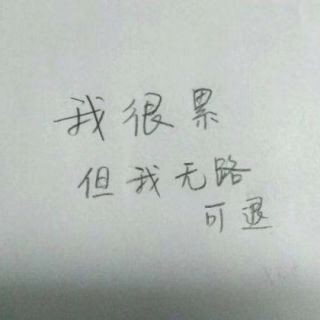 我很累
但我无路
可退